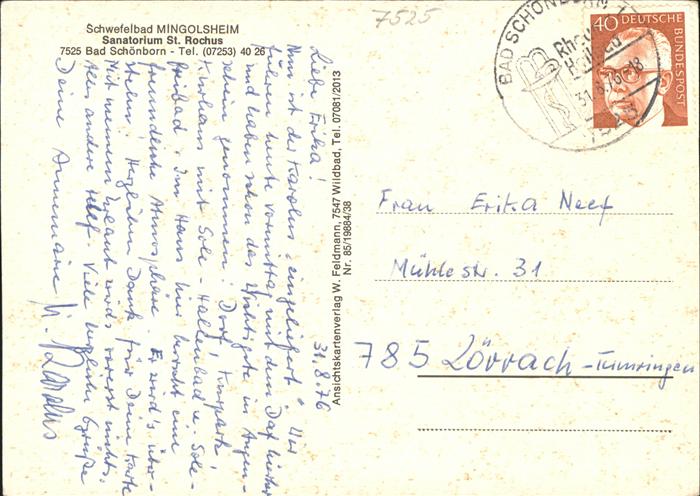 Schwefelbad MINGOLSHEIM
Sanatorium St. Rochus
7525 Bad Schönborn - Tel. (07253) 40 26
7525
BAD SCHÖNBORN 1
31.8.76-18
7525
40 DEUTSCHE
BUNDESPOST
31.8.76
Liebe Erika!
Nun ist der Karolus "eingeliefert". Wir
fuhren heute vormittag mit dem Daf hierher
und haben schon das Wichtigste in Augen-
schein genommen: Dorf, Kurpark,
Kurhaus mit Sole-Hallenbad u. Sole-
freibad. Im Haus hier herrscht eine
freundliche Atmosphäre. Er wird's über-
stehen! Herzlichen Dank für Deine Karte
Mit meinem Urlaub wird's vorerst nichts.
Alles andere tel. Viele herzliche Grüße
Deine Annemarie u. Karolus
Ansichtskartenverlag W. Feldmann, 7547 Wildbad, Tel. 07081/2013
Nr. 85/19884/38
Frau Erika Neef
Mühlestr. 31
785 Lörrach-Tumringen